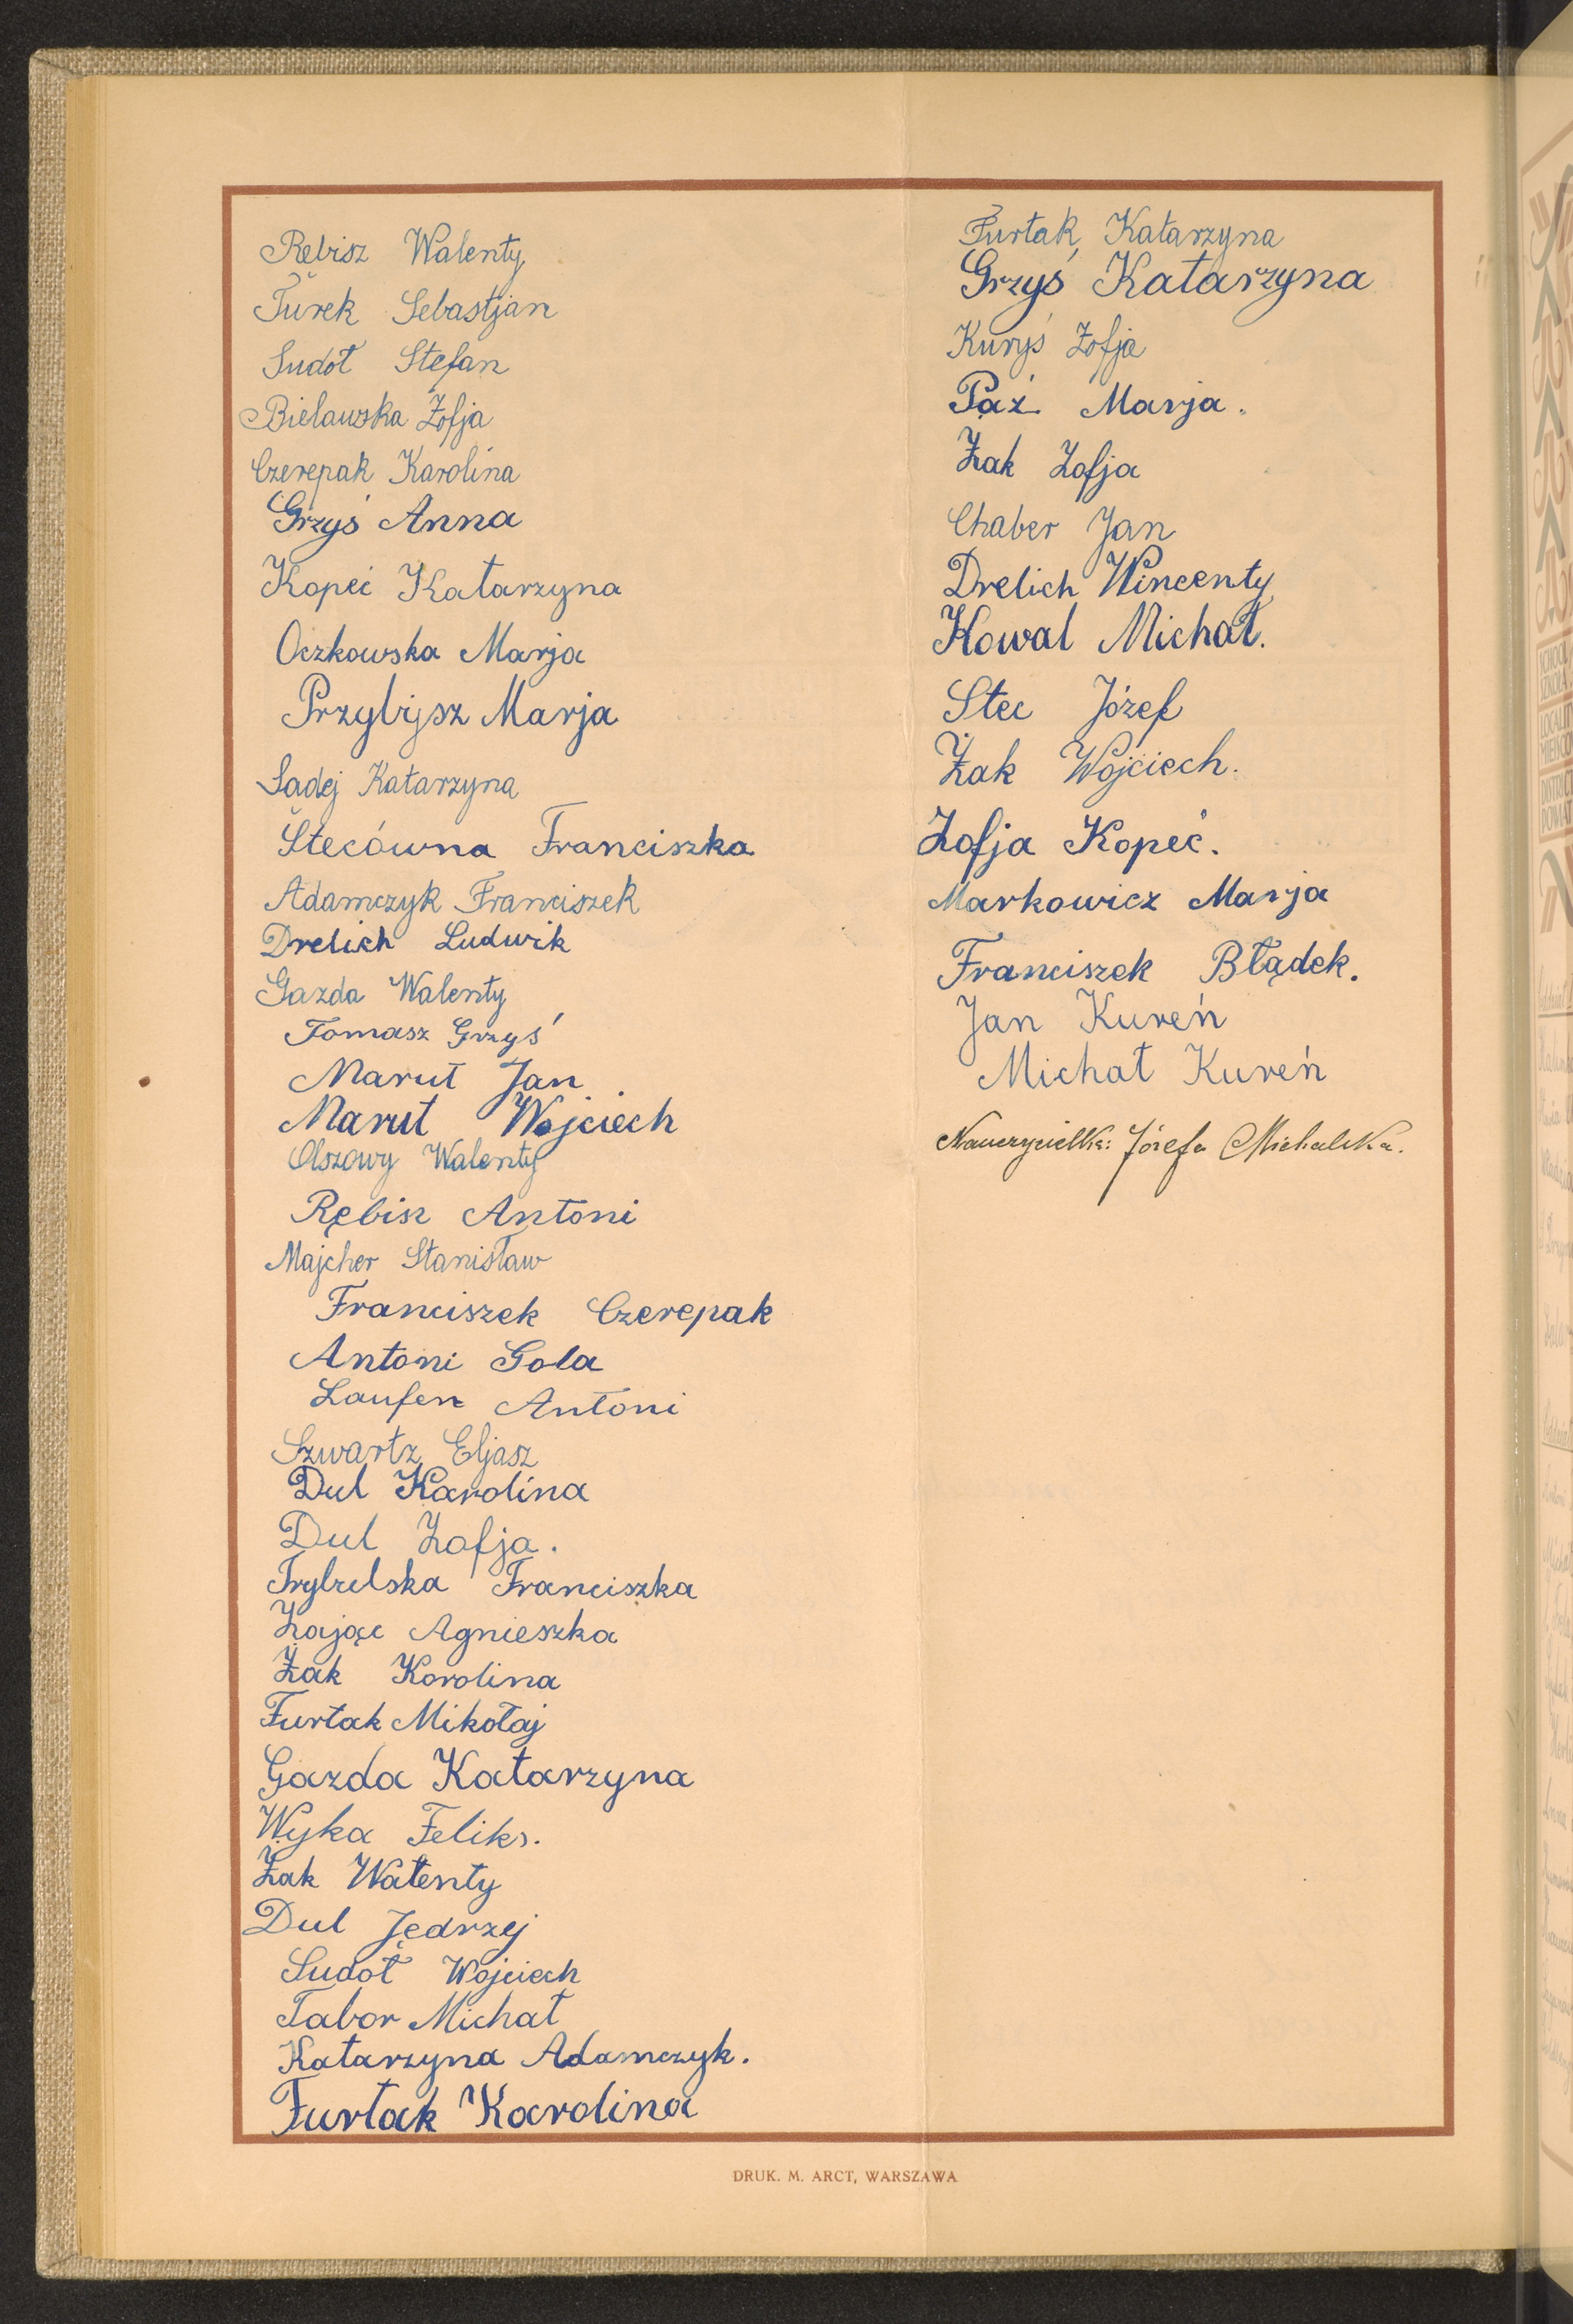 Rebisz Walenty
Turek Sebastjan
Sudoł Stefan
Bielawska Zofja
Czerepak Karolina
Grzyś Anna
Kopeć Katarzyna
Oczkowska Marja
Przybysz Marja
Sadej Katarzyna
Stecówna Franciszka
Adamczyk Franciszek
Drelich Ludwik
Gazda Walenty
Tomasz Grzyś
Marut Jan
Marut Wojciech
Olszowy Walenty
Rębisz Antoni
Majcher Stanisław
Franciszek Czerepak
Antoni Gola
Laufen Antoni
Szwartz Eljasz
Dul Karolina
Dul Zofja.
Franciszka
Zając Agnieszka
Żak Karolina
Furtak Mikołaj
Gazda Katarzyna
Wyka Feliks.
Żak Walenty
Dul Jędrzej
Sudoł Wojciech
Tabor Michał
Katarzyna Adamczyk.
Furtak Karolina
Furtak Katarzyna
Grzyś Katarzyna
Kuryś Zofja
Paź Marja.
Żak Zofja
Chaber Jan
Drelich Wincenty
Kowal Michał.
Stec Józef
Żak Wojciech.
Zofja Kopeć.
Markowicz Marja
Franciszek Błądek.
Jan Kureń
Michał Kureń
Nauczycielka: Józefa Michalska.
DRUK. M. ARCT, WARSZAWA